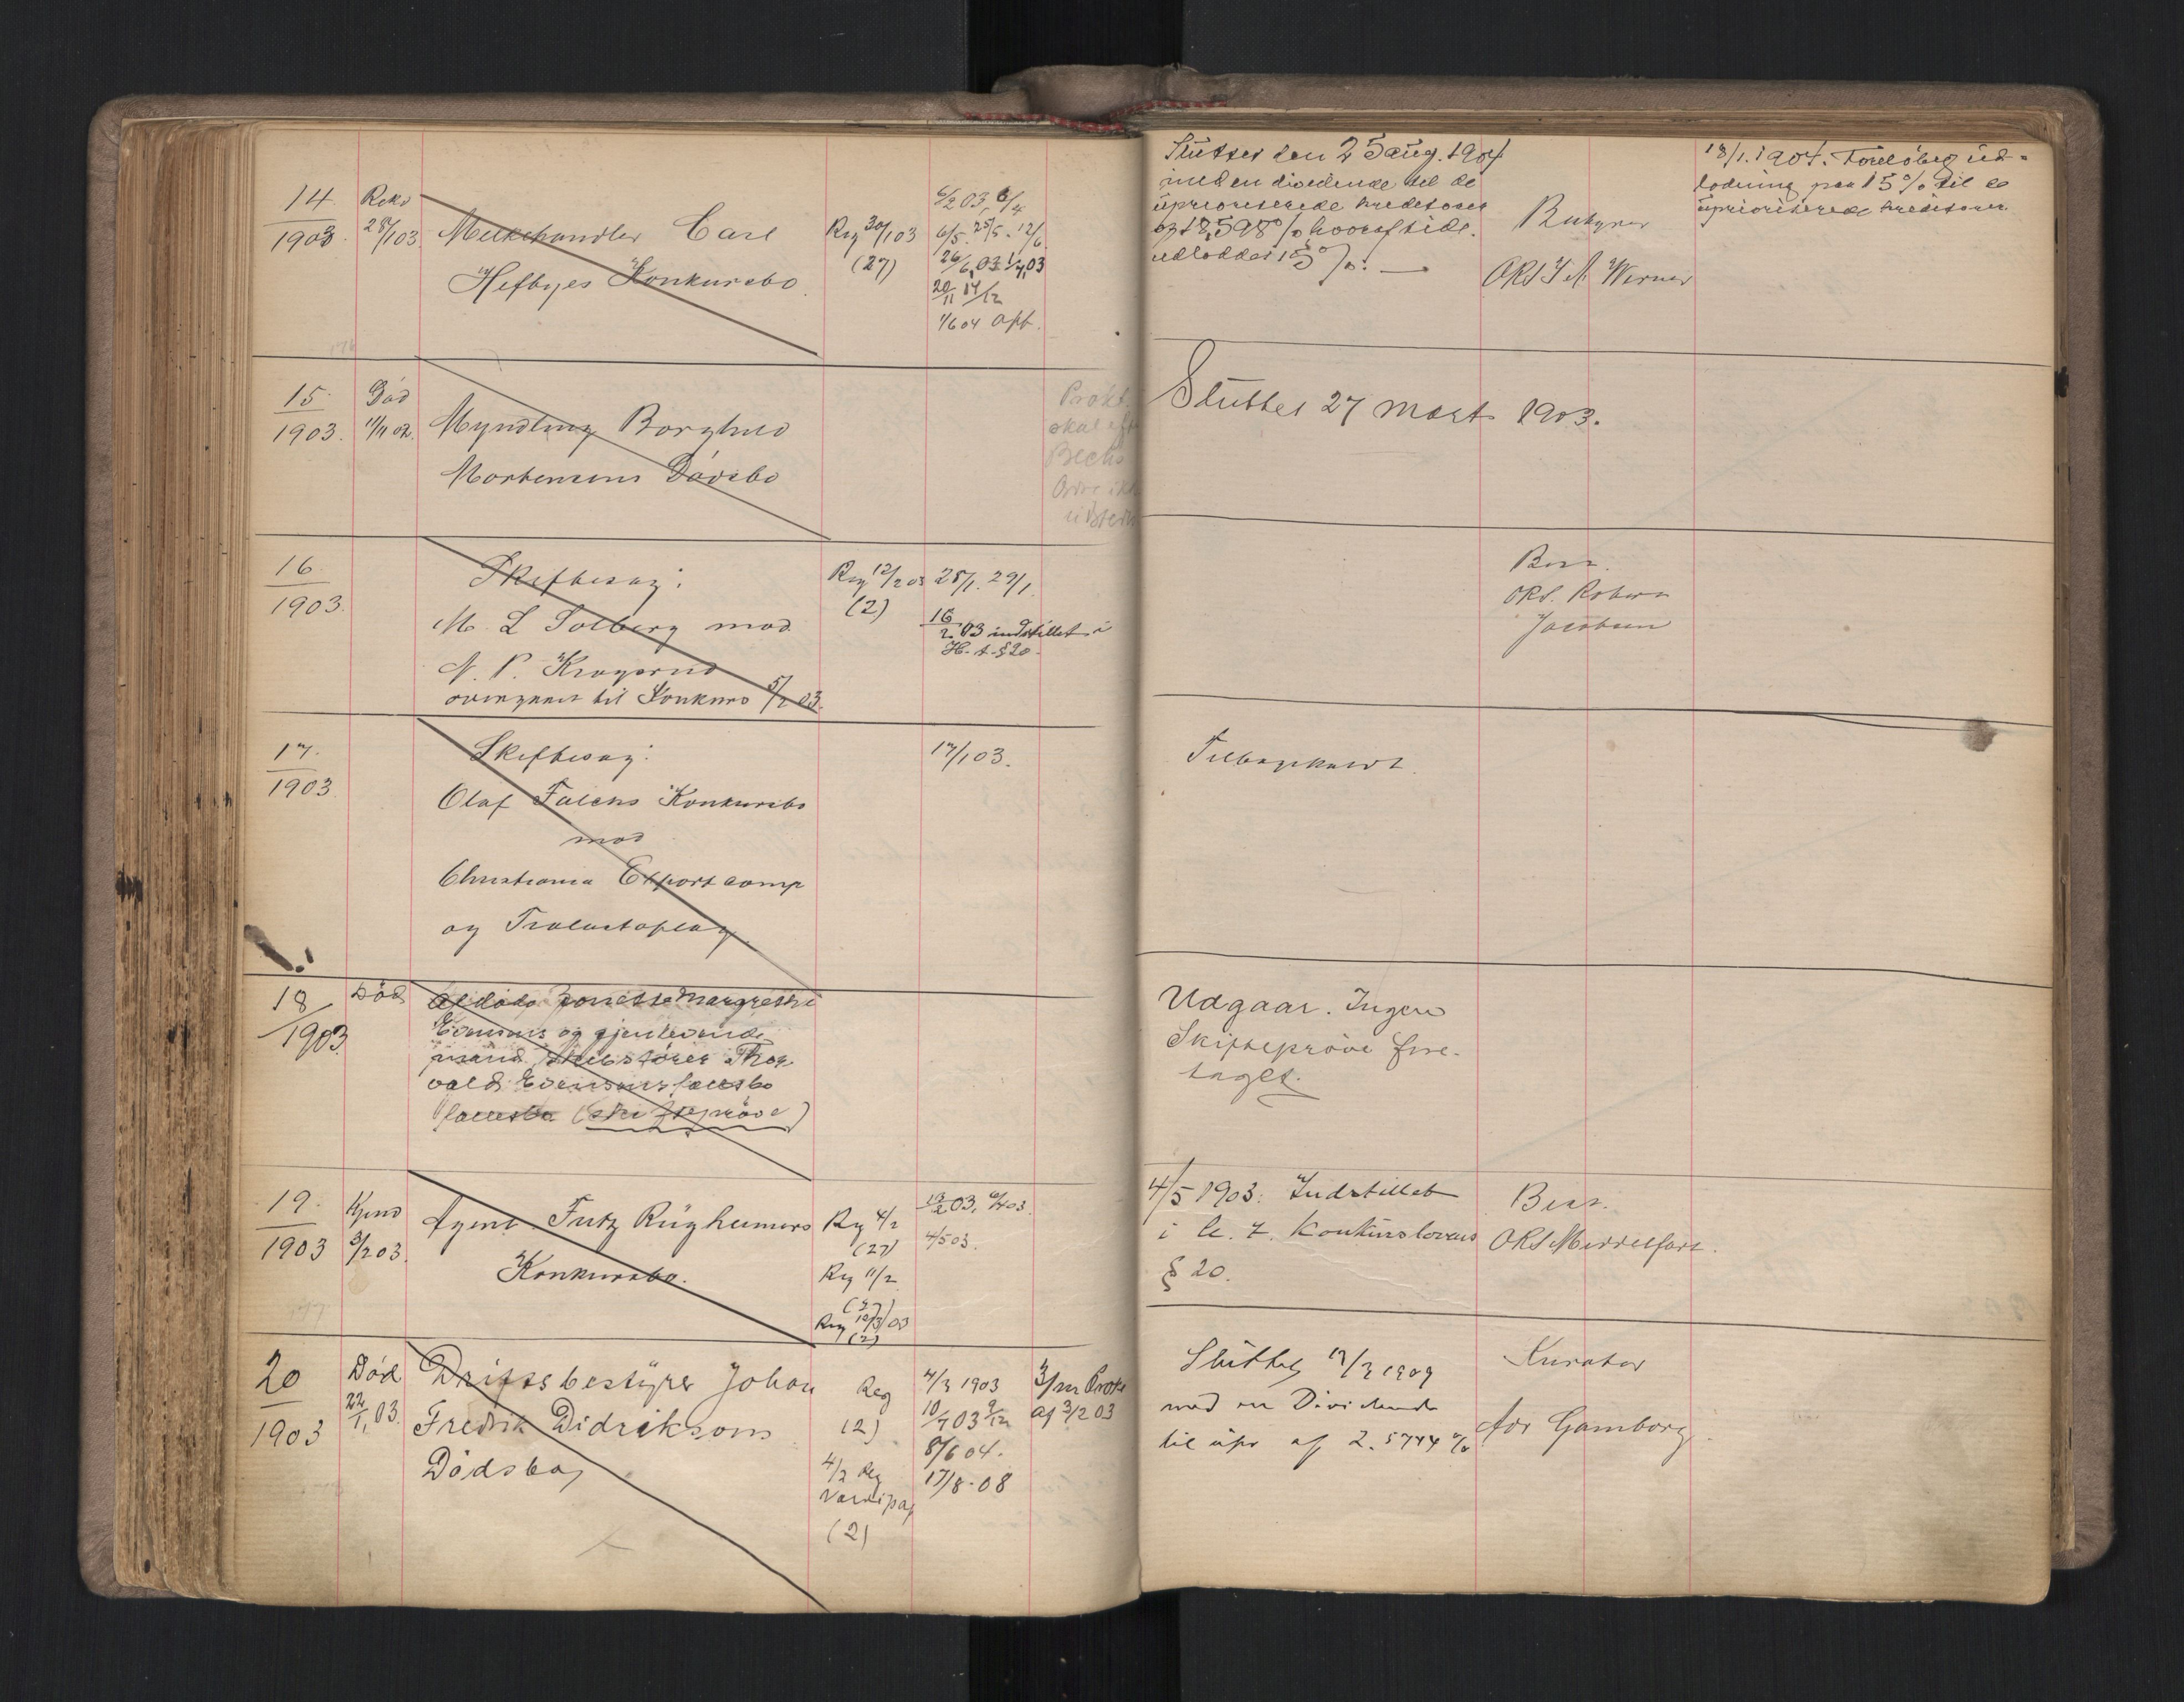 14
1903.
Rekv
28/1 03.
Melkehandler Carl
Hefbyes Konkursbo.
Reg 30/1 03
(27)
6/2 03, 6/4
6/5. 25/5. 12/6
26/6 03
20/11 14/12
1/6 04 Opb.
Sluttet den 25 aug. 1904
med en dividende til de
uprioriterede kreditorer
18,598% hvoraf tidl.
udloddet 15%. —
Bestyrer
ORS Werner
18/1. 1904. Foreløbig ud-
lodning paa 15% til de
uprioriterede kreditorer
15
1903.
Død
11/11 02.
Myndling Borghild
Mortensens Dødsbo
skal
Bechs
Sluttet 27 Marts 1903.
16
1903.
Skiftesag:
M. L. Solberg mod
N. P. Krogsrud
overgaaet til Konkurs 5/2 03.
Reg 12/2 03
(2)
28/1. 29/1
16/2 03 indstillet i
H. t. § 20.
Best.
ORS. Robert
Jacobsen
17.
1903
Skiftesag:
Olaf Falchs Konkursbo
mod
Christiania Exportcomp
og Trælastoplag.
17/1 03.
Tilbagekaldt.
18
1903
Død
Margrethe
Evensens og gjenlevende
mand Thor-
vald Evensens fællesbo
fællesbo (skifteprøve)
Udgaar. Ingen
Skifteprøve fore-
taget.
19.
1903
Kjend
3/2 03.
Agent Fritz Rügheimers
Konkursbo.
Reg 4/2
(27)
Reg 11/2
(27)
Reg 12/3 03
(2)
19/2 03, 6/4 03.
4/5 03.
4/5 1903. Indstillet
i H. t. Konkurslovens
§ 20.
Best.
ORS Middelfart.
20
1903
Død
22/1 03.
Driftsbestyrer Johan
Fredrik Didriksens
Dødsbo,
Reg
(2)
4/2 Reg
(2)
4/3 1903
10/7 03 9/12
8/6 04.
17/8 08
af 3/2 03
Sluttet 12/3 1909
med en Dividende
til upr af 2.5744 %
Kurator
Adv Gamborg